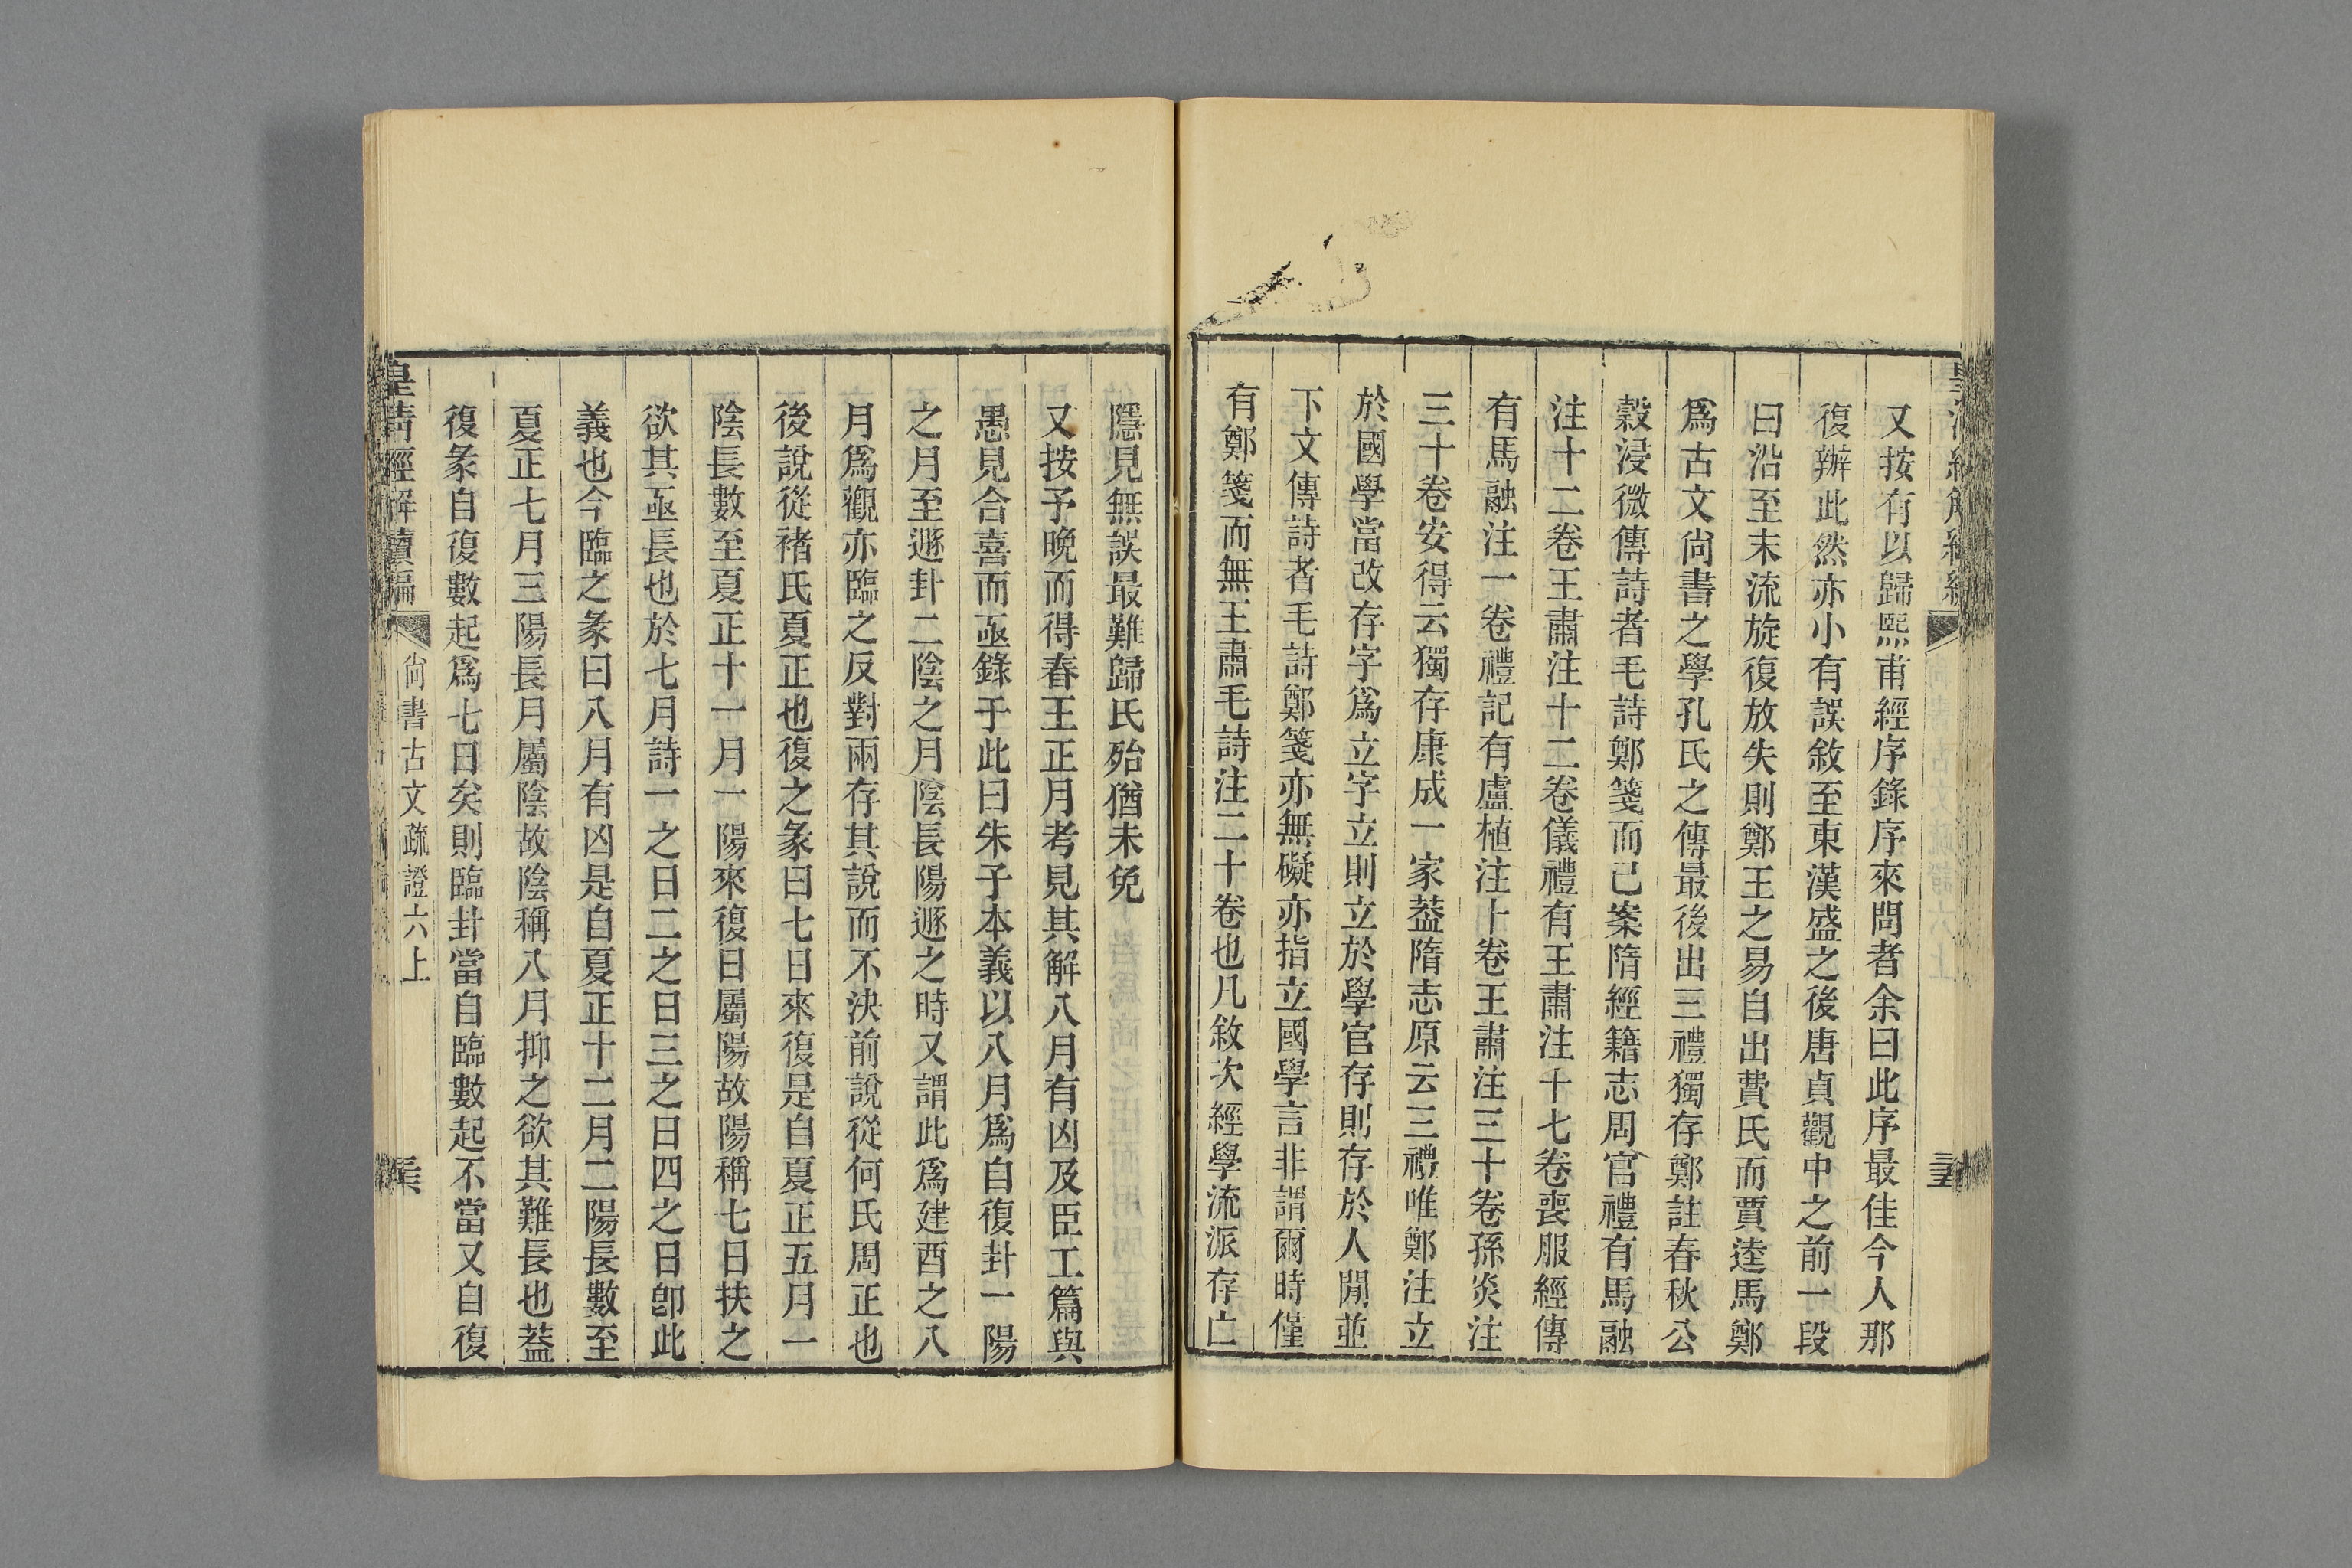 又按有以歸熙甫經序錄序來問者余曰此序最佳今人那
復辦此然亦小有誤敘至東漢盛之後唐貞觀中之前一段
曰沿至末流旋復放失則鄭王之易自出費氏而賈逵馬鄭
爲古文尙書之學孔氏之傳最後出三禮獨存鄭註春秋公
穀浸微傳詩者毛詩鄭箋而已案隋經籍志周官禮有馬融
注十二卷王肅注十二卷儀禮有王肅注十七卷喪服經傳
有馬融注一卷禮記有盧植注十卷王肅注三十卷孫炎注
三十卷安得云獨存康成一家葢隋志原云三禮唯鄭注立
於國學當改存字爲立字立則立於學官存則存於人閒並
下文傳詩者毛詩鄭箋亦無礙亦指立國學言非謂爾時僅
有鄭箋而無王肅毛詩注二十卷也凡敘次經學流派存亡
隱見無誤最難歸氏殆猶未免
又按予晚而得春王正月考見其解八月有凶及臣工篇與
愚見合喜而亟錄于此曰朱子本義以八月爲自復卦一陽
之月至遯卦二陰之月陰長陽遯之時又謂此爲建酉之八
月爲觀亦臨之反對兩存其說而不決前說從何氏周正也
後說從褚氏夏正也復之彖曰七日來復是自夏正五月一
陰長數至夏正十一月一陽來復日屬陽故陽稱七日扶之
欲其亟長也於七月詩一之日二之日三之日四之日卽此
義也今臨之彖曰八月有凶是自夏正十二月二陽長數至
夏正七月三陽長月屬陰故陰稱八月抑之欲其難長也葢
復彖自復數起爲七日矣則臨卦當自臨數起不當又自復
皇淸經解續編
尙書古文疏證六上